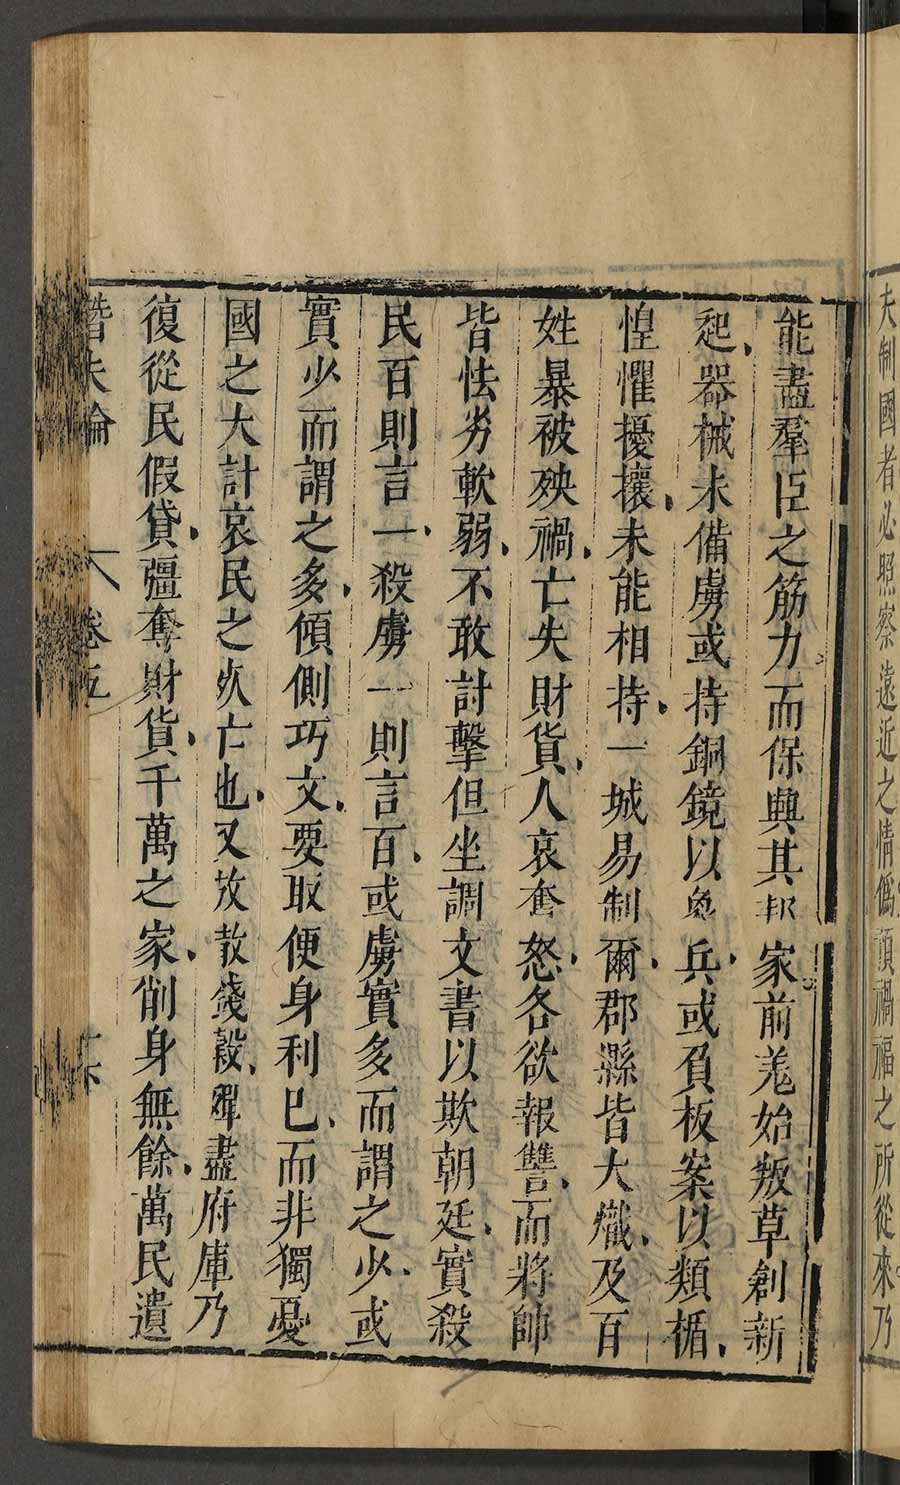 夫制國者必照察遠近之情僞預禍福之所從來乃
能盡羣臣之筋力而保興其邦家前羌始叛草創新
起器械未備虜或持銅鏡以象兵或負板案以類楯
惶懼擾攘未能相持一城易制爾郡縣皆大熾及百
姓暴被殃禍亡失財貨人哀奮怒各欲報讐而將帥
皆怯劣軟弱不敢討擊但坐調文書以欺朝廷實殺
民百則言一殺虜一則言百或虜實多而謂之少或
實少而謂之多傾側巧文要取便身利己而非獨憂
國之大計哀民之死亡也又放散錢穀殫盡府庫乃
復從民假貸彊奪財貨千萬之家削身無餘萬民遺
潛夫論 卷五